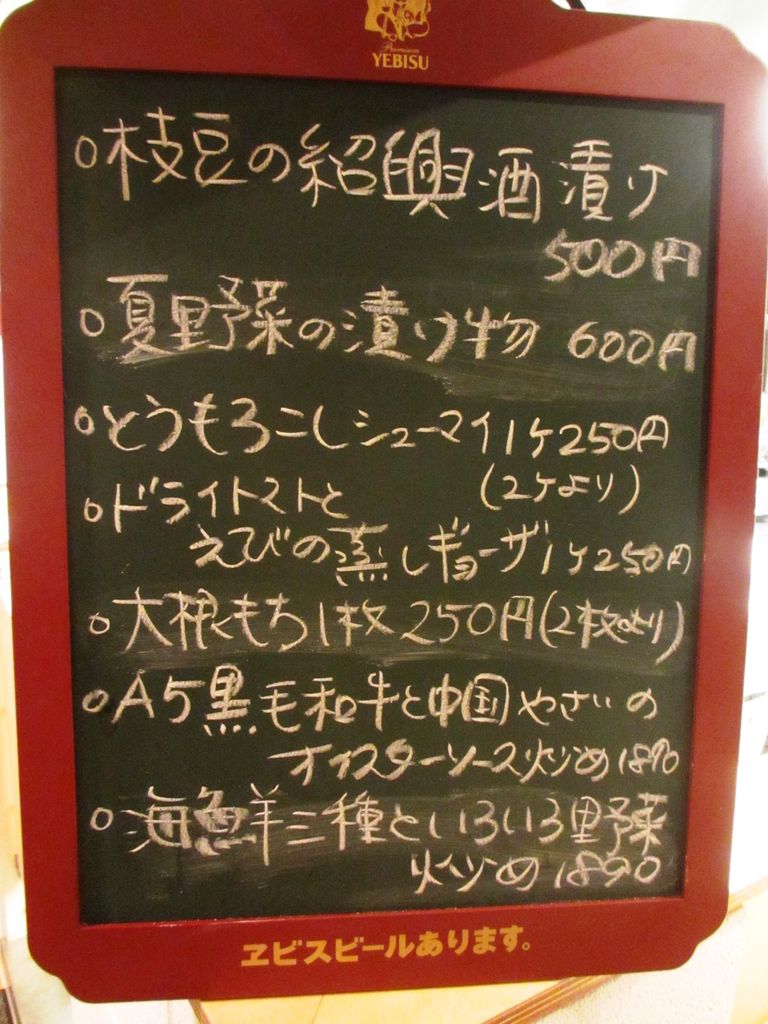 Premium
YEBISU
○枝豆の紹興酒漬け
500円
○夏野菜の漬け物 600円
○とうもろこしシューマイ1ケ250円
(2ケより)
○ドライトマトと
えびの蒸しギョーザ1ケ250円
○大根もち1枚250円(2枚より)
○A5黒毛和牛と中国やさいの
オイスターソース炒め1890
○海鮮三種といろいろ野菜
炒め1890
ヱビスビールあります。